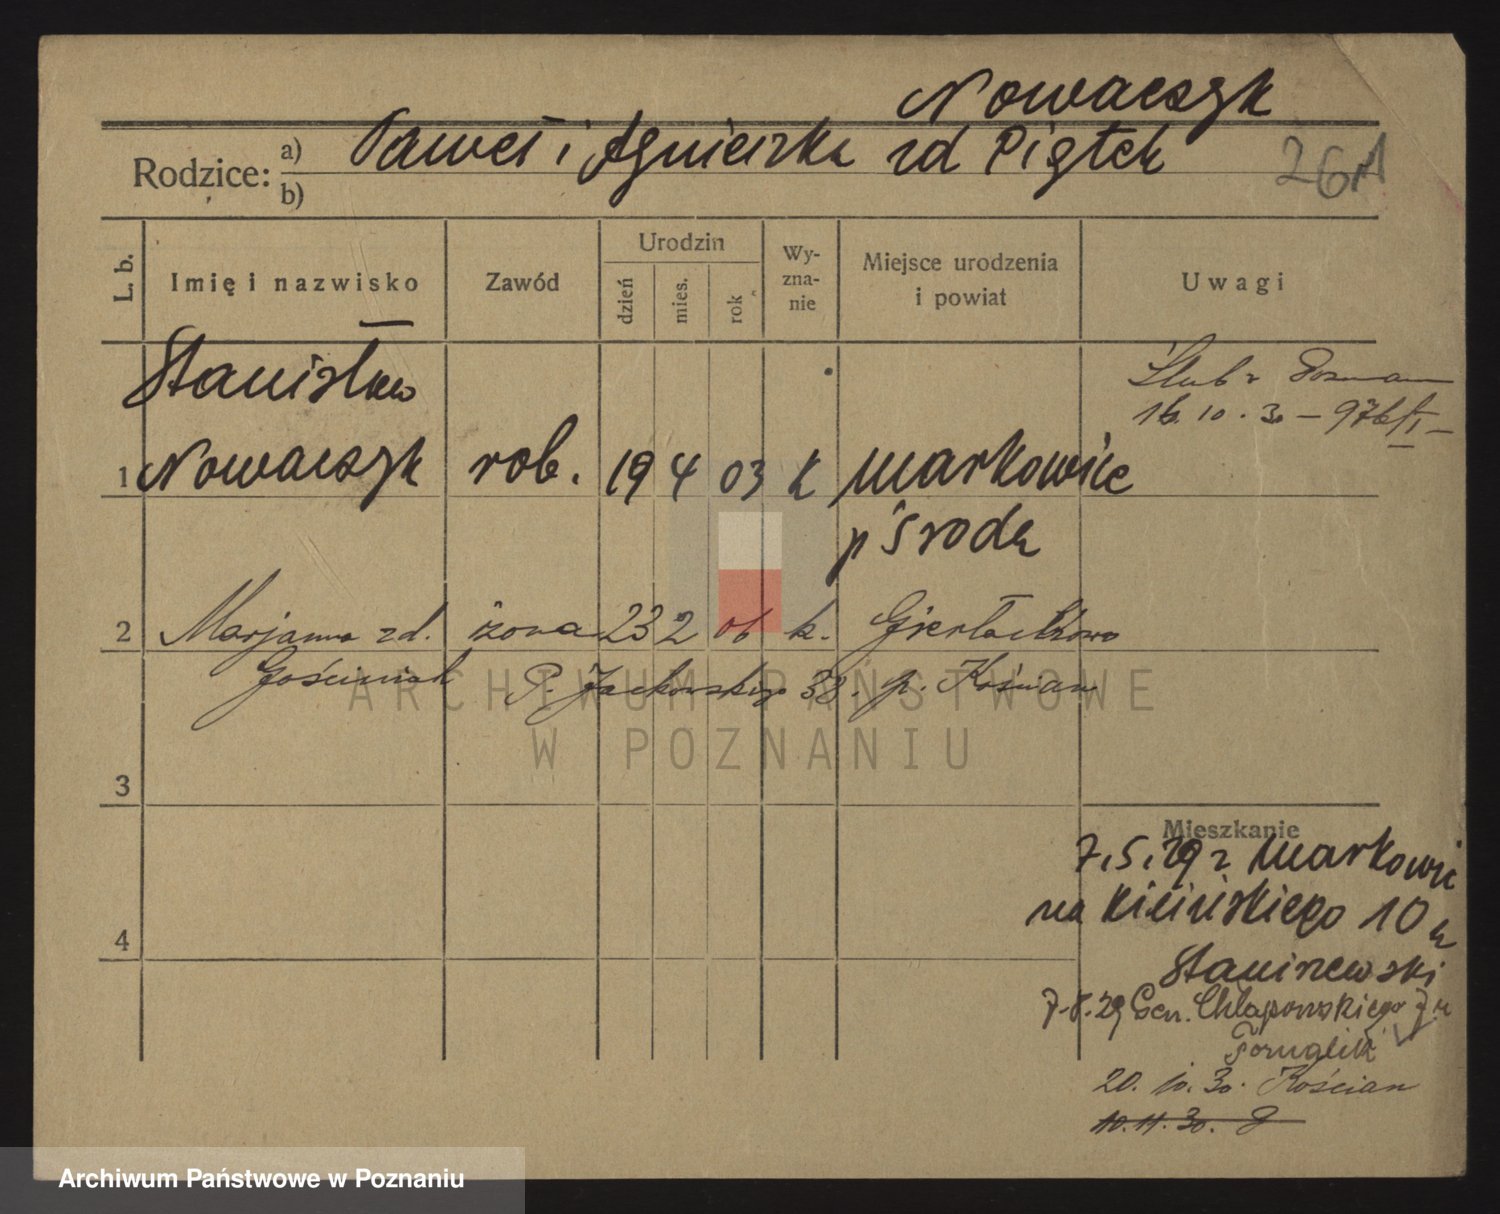 Nowaczyk
Rodzice: a) Paweł i Agnieszka zd Piątek
b)
26A
L. b.
Imię i nazwisko
Zawód
Urodzin
dzień
mies.
rok
Wy-
zna-
nie
Miejsce urodzenia
i powiat
Uwagi
Stanisław
Ślub z Poznan
16.10.30 – 976/I –
1 Nowaczyk rob. 19 4 03 k Markowice
p Środa
2 Marjanna zd. żona 23 2 06 k.
Gościniak P. Jackowskiego 38. p. Kościan
ARCHIWUM PAŃSTWOWE
W POZNANIU
3
Mieszkanie
7.5.29 z Markowic
na Kilińskiego 10 u
4
Staniszewski
7.8.29 Gen. Chłapowskiego 7 u
20.10.30. Kościan
10.11.30.
Archiwum Państwowe w Poznaniu